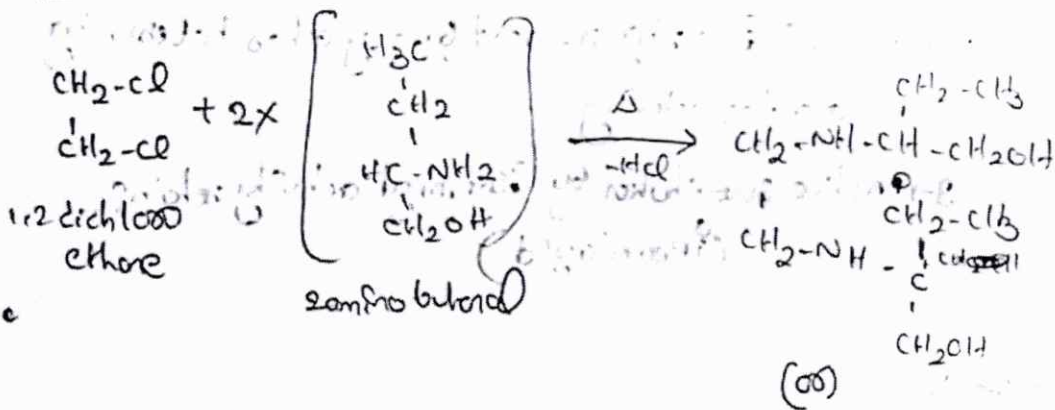 CH2-Cl
CH2-Cl
1,2 dichloro
ethane
+ 2x
H3C
CH2
HC-NH2
CH2OH
2amino butanol
Δ
-HCl
CH2-CH3
CH2-NH-CH-CH2OH
CH2-CH3
CH2-NH-C
CH2OH
(or)